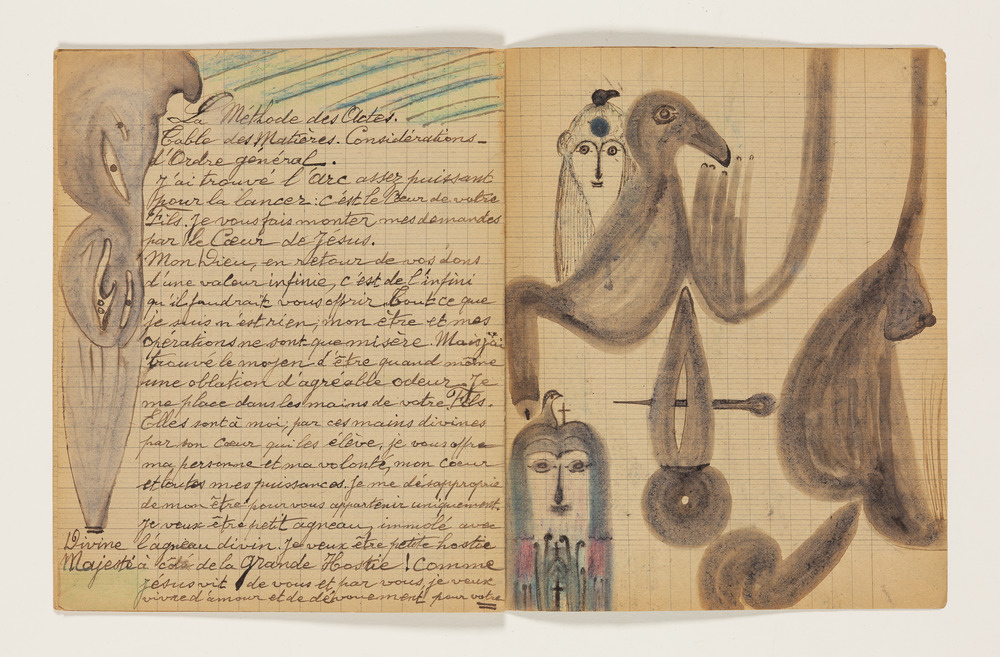 La Méthode des Actes.
Table des Matières. Considérations_
d'Ordre général.
J'ai trouvé l'arc assez puissant
pour la lancer : c'est le Cœur de votre
Fils. Je vous fais monter mes demandes
par le Cœur de Jésus.
Mon Dieu, en retour de vos dons
d'une valeur infinie, c'est de l'infini
qu'il faudrait vous offrir. Tout ce que
je suis n'est rien, mon être et mes
opérations ne sont que misère. Mais j'ai
trouvé le moyen d'être quand même
une oblation d'agréable odeur. Je
me place dans les mains de votre Fils.
Elles sont à moi, par ces mains divines
par son cœur qui les élève, je vous offre
ma personne et ma volonté, mon cœur
et toutes mes puissances. Je me désapproprie
de mon être pour vous appartenir uniquement.
Je veux être petit agneau, immolé avec
Divine l'agneau divin. Je veux être petite hostie
Majesté à côté de la grande Hostie ! Comme
Jésus vit de vous et par vous, je veux
vivre d'amour et de dévouement pour votre